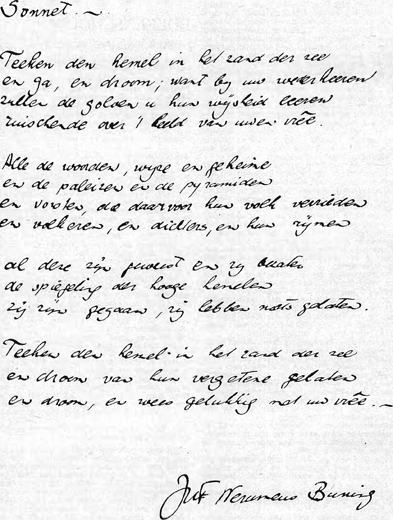 Sonnet.

Teeken den hemel in het zand der zee
en ga, en droom; want by uw wederkeeren
zullen de golven u hun wijsheid leeren
ruischende over 't beeld van uwen vreê.

Alle de woorden, wijze en geheime
en de paleizen en de pyramiden
en vorsten, die daarvoor hun volk verrieden
en volkeren, en dichters, en hun rijmen

al deze zijn geweest en zij
de spiegeling der hooge hemelen
zij zijn gegaan, zij hebben niets gelaten.

Teeken den hemel in het zand der zee
en droom van hun vergetene gelaten
en droom, en wees gelukkig met uw vreê.

JWF Werumeus Buning